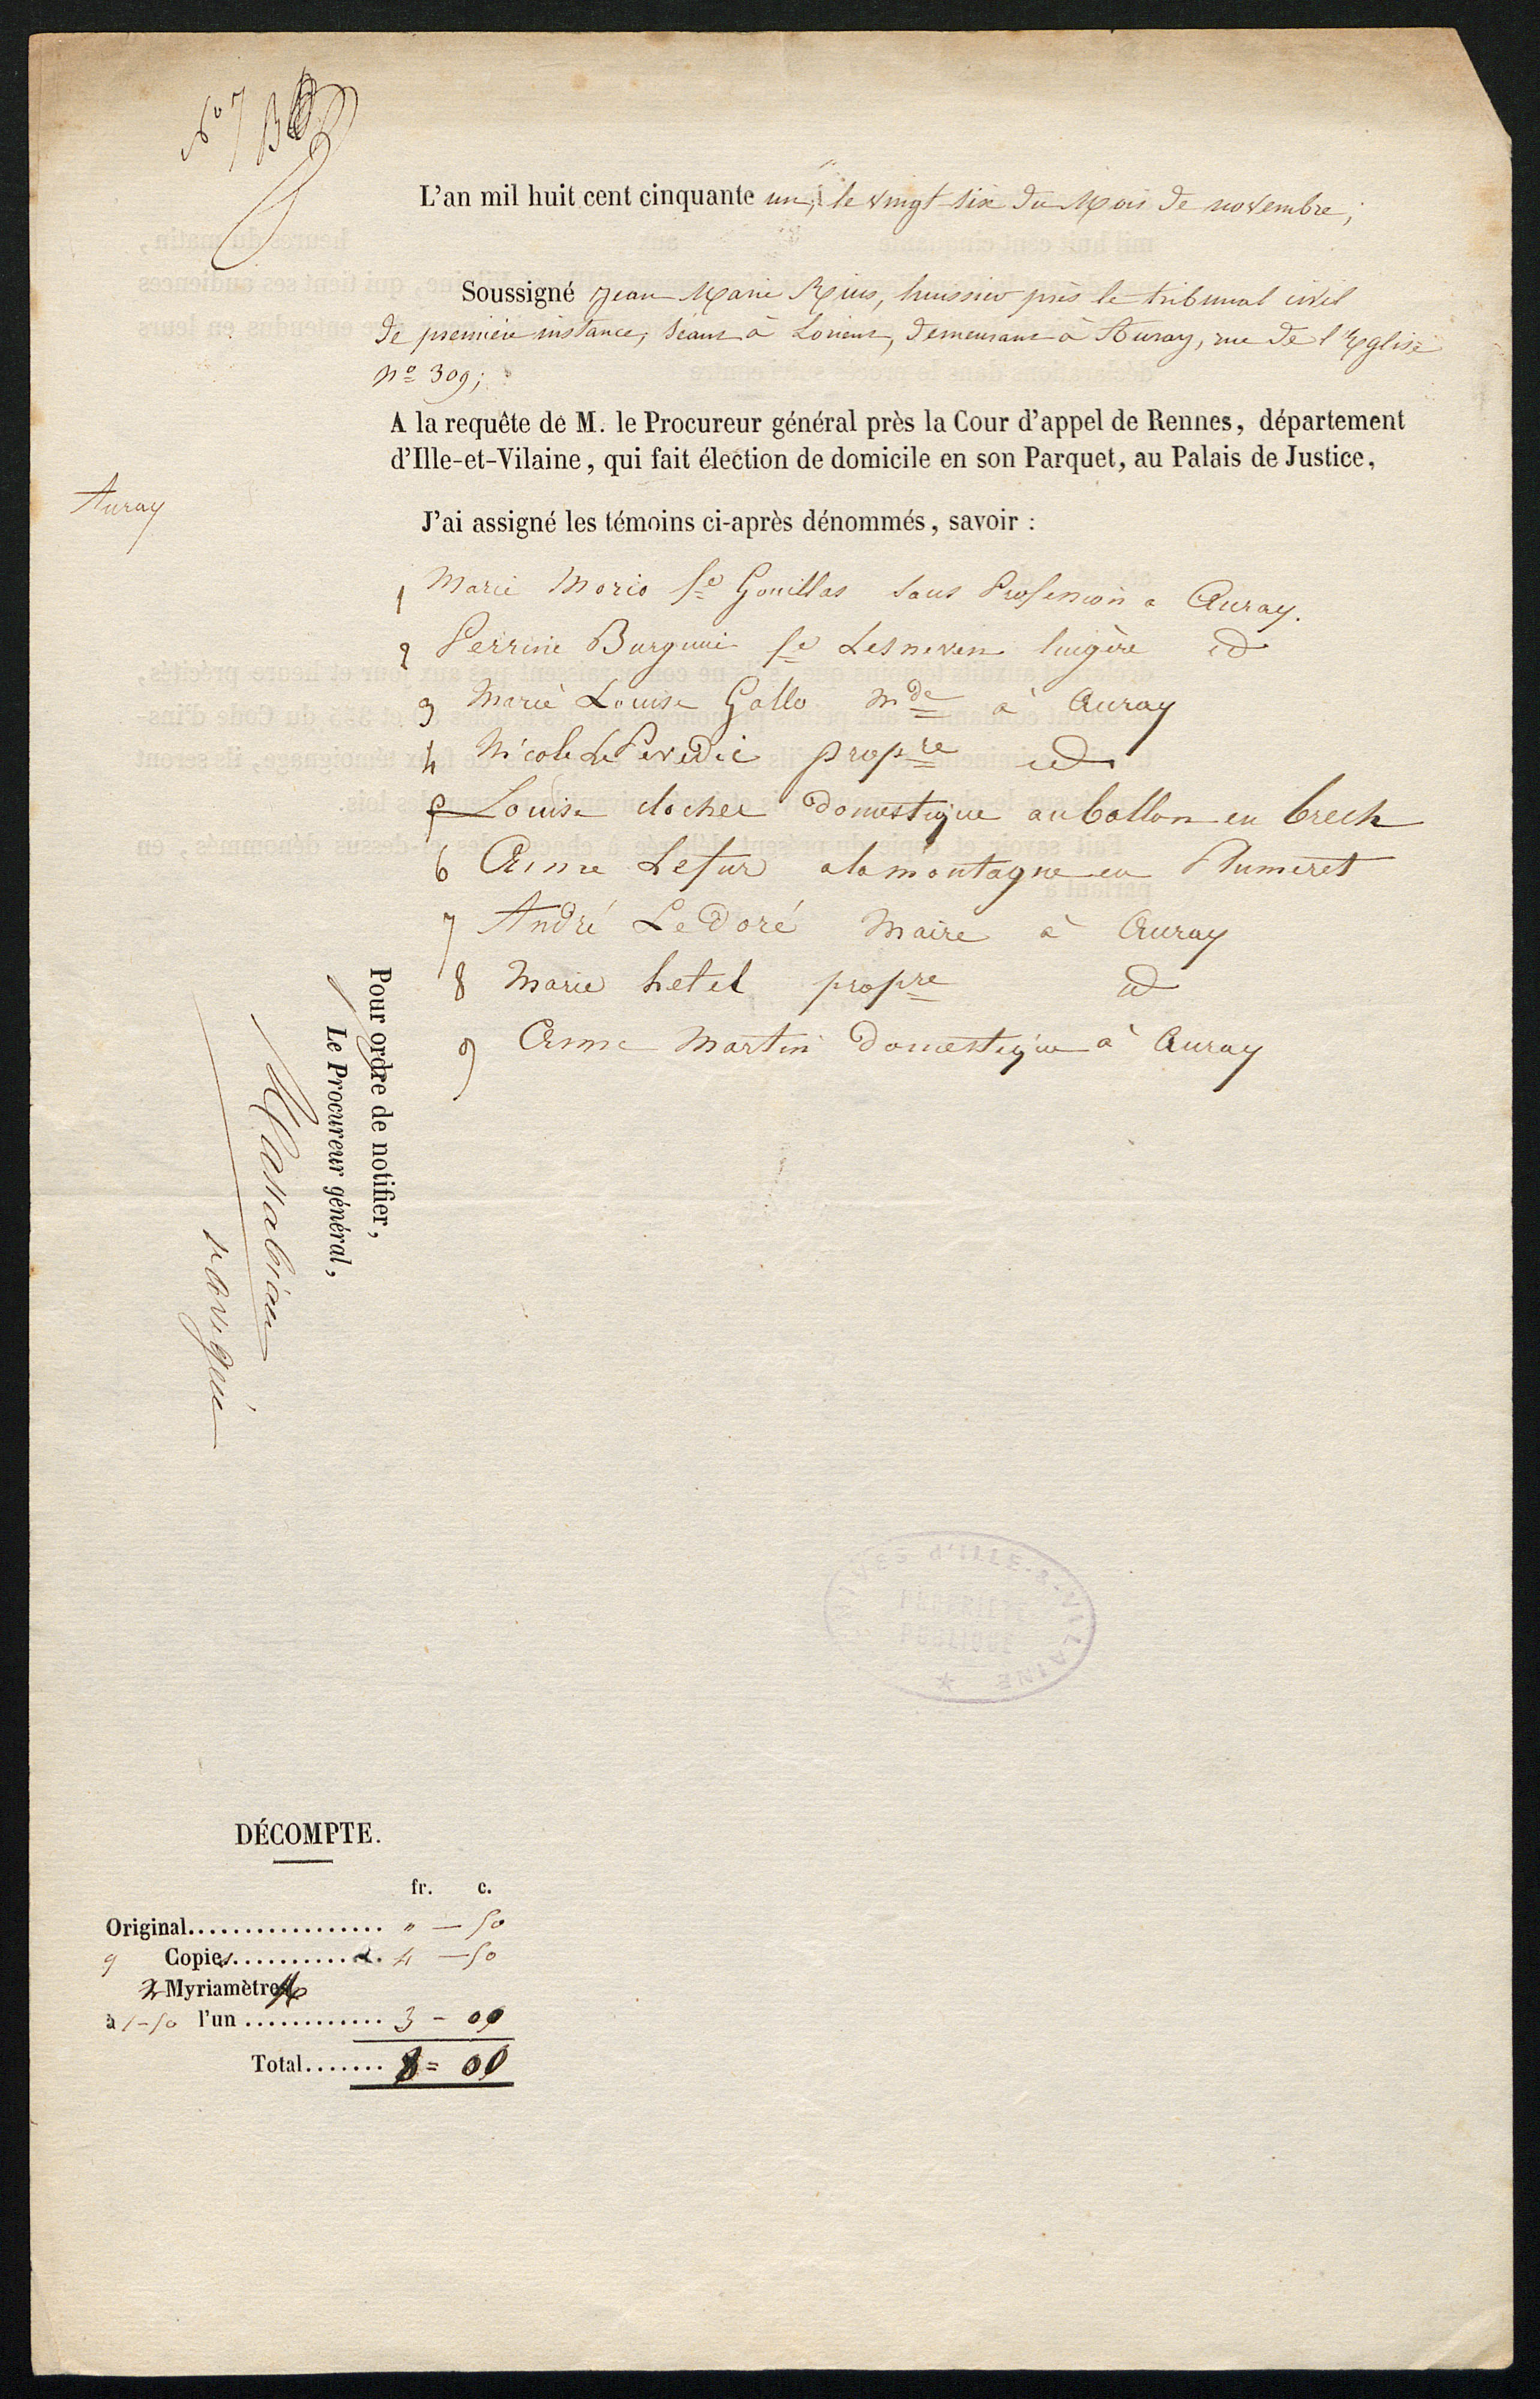 N° 7
L'an mil huit cent cinquante un, le vingt six du Mois de novembre;
Soussigné Jean Marie huissier près le tribunal civil
de première instance, séant à Lorient, demeurant à Auray, rue de l'Eglise
n° 309;
A la requête de M. le Procureur général près la Cour d'appel de Rennes, département
d'Ille-et-Vilaine, qui fait élection de domicile en son Parquet, au Palais de Justice,
Auray
J'ai assigné les témoins ci-après dénommés, savoir :
1 Marie Morio fe Gouillas sans Profession a Auray.
2 Perrine fe Lesneven lingère id
3 Marie Louise Gallo mde à Auray
4 Nicole Le Pevedic propre id
5 Louise clocher domestique au ballon en brech
6 Anne Lefur a la montagne en Plumeret
7 André Le Doré Maire à Auray
8 Marie hetel propre id
9 Anne Martin domestique à Auray
Pour ordre de notifier,
Le Procureur général,
DÉCOMPTE.
fr. c.
Original................. " — 50
9 Copies............. 4 — 50
2 Myriamètres
à 1-50 l'un ............ 3 - 00
Total....... 8 = 00
ARCHIVES d'ILLE-&-VILAINE
PROPRIÉTÉ
PUBLIQUE